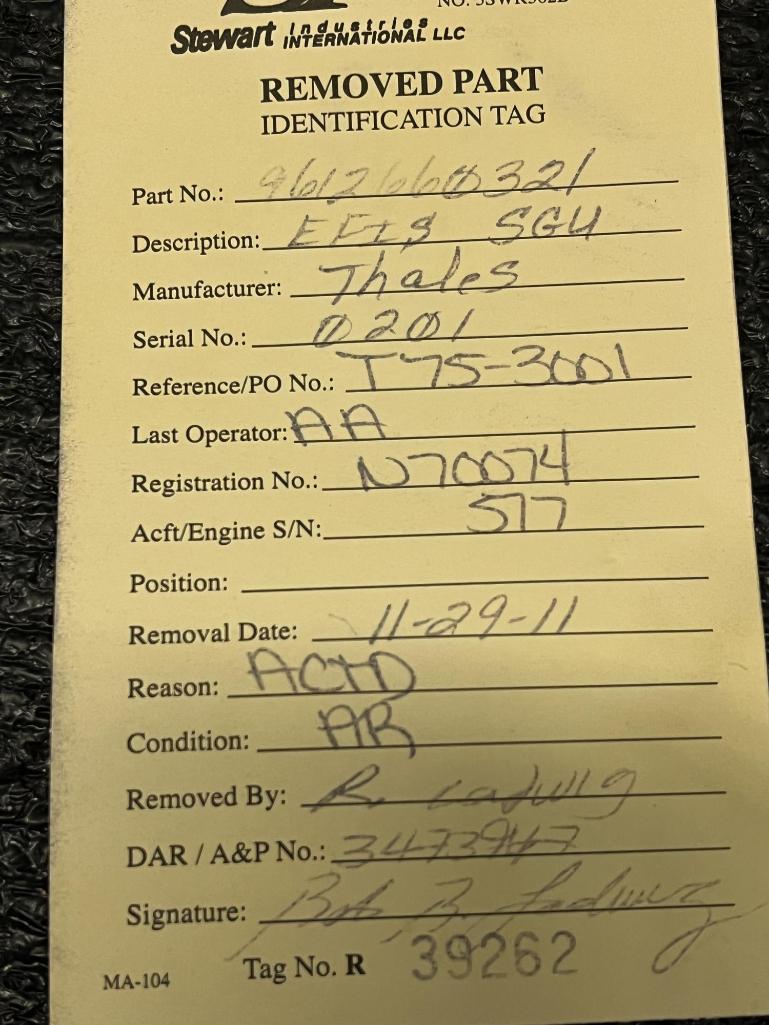 Stewart Industries INTERNATIONAL LLC
REMOVED PART
IDENTIFICATION TAG
Part No.: 9612660321
Description: EFIS SGU
Manufacturer: Thales
Serial No.: 0201
Reference/PO No.: T75-3001
Last Operator: AA
Registration No.: N70074
Acft/Engine S/N: 577
Position:
Removal Date: 11-29-11
Reason: ACHD
Condition: AR
Removed By: R Ladwig
DAR / A&P No.: 3473947
Signature:
MA-104 Tag No. R 39262